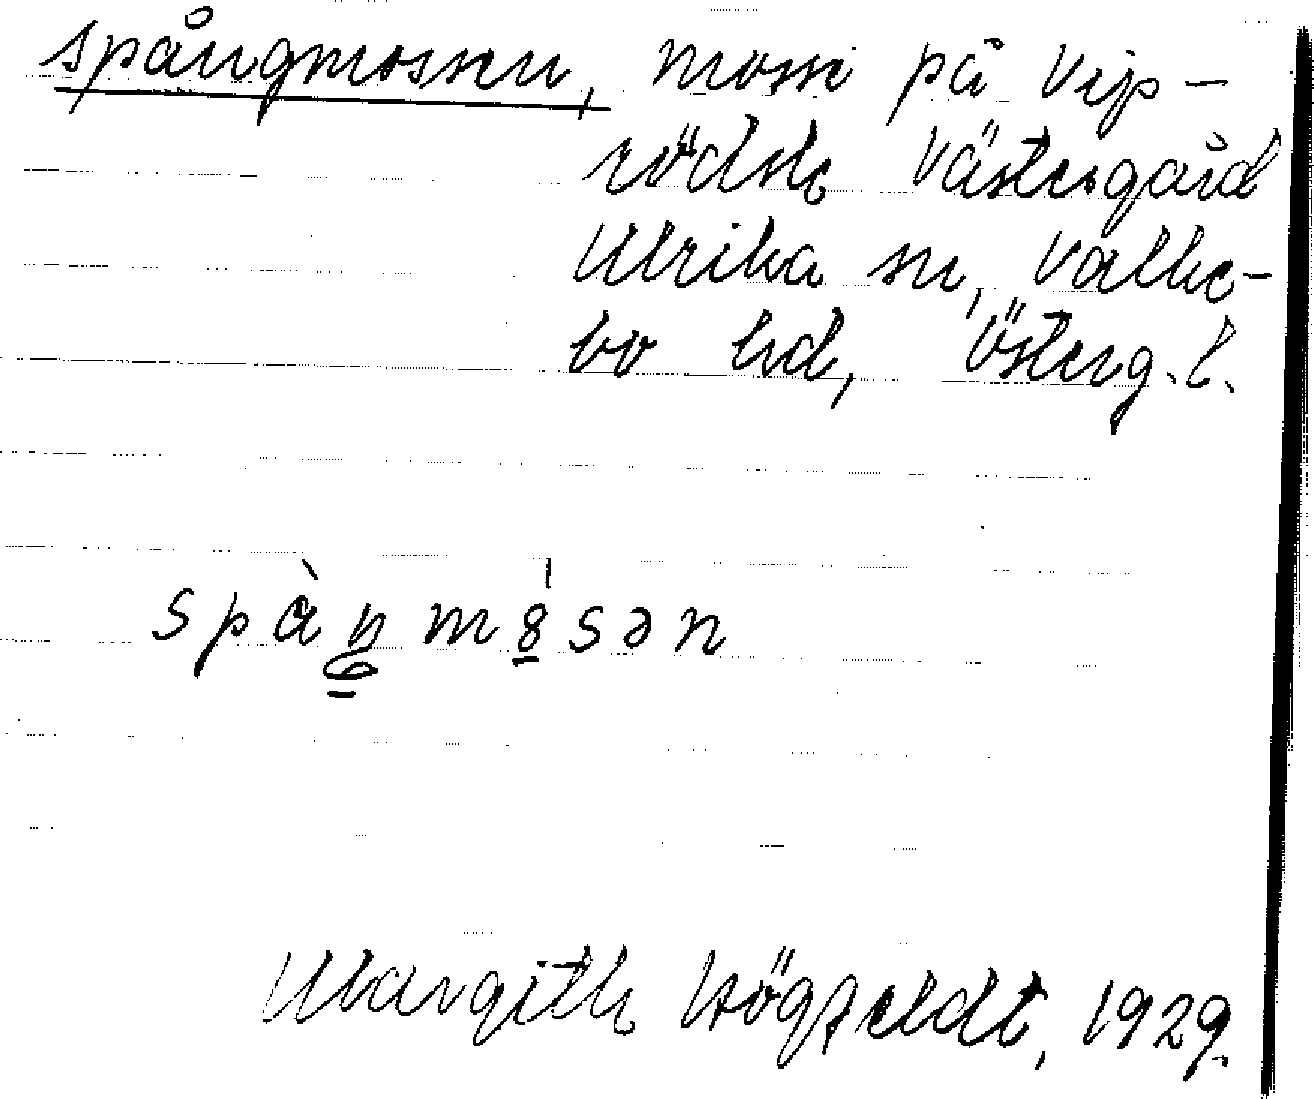 spångmossen, mosse på Vip-
rödsh Västergård
Ulrika sn, Valke-
bo hd, Österg.l.
spàŋmåsən
Margith Högfeldt, 1929.